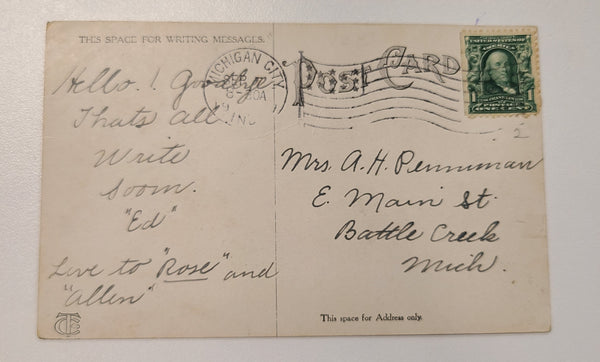 THIS SPACE FOR WRITING MESSAGES.
Hello! Goodbye
Thats all
Write
Soon.
"Ed"
Love to "Rose" and
"Allen"
MICHIGAN CITY
8-30A
IND
POST CARD
UNITED STATES OF AMERICA
1
2
Mrs. A. H. Penniman
E. Main St.
Battle Creek
Mich.
This space for Address only.